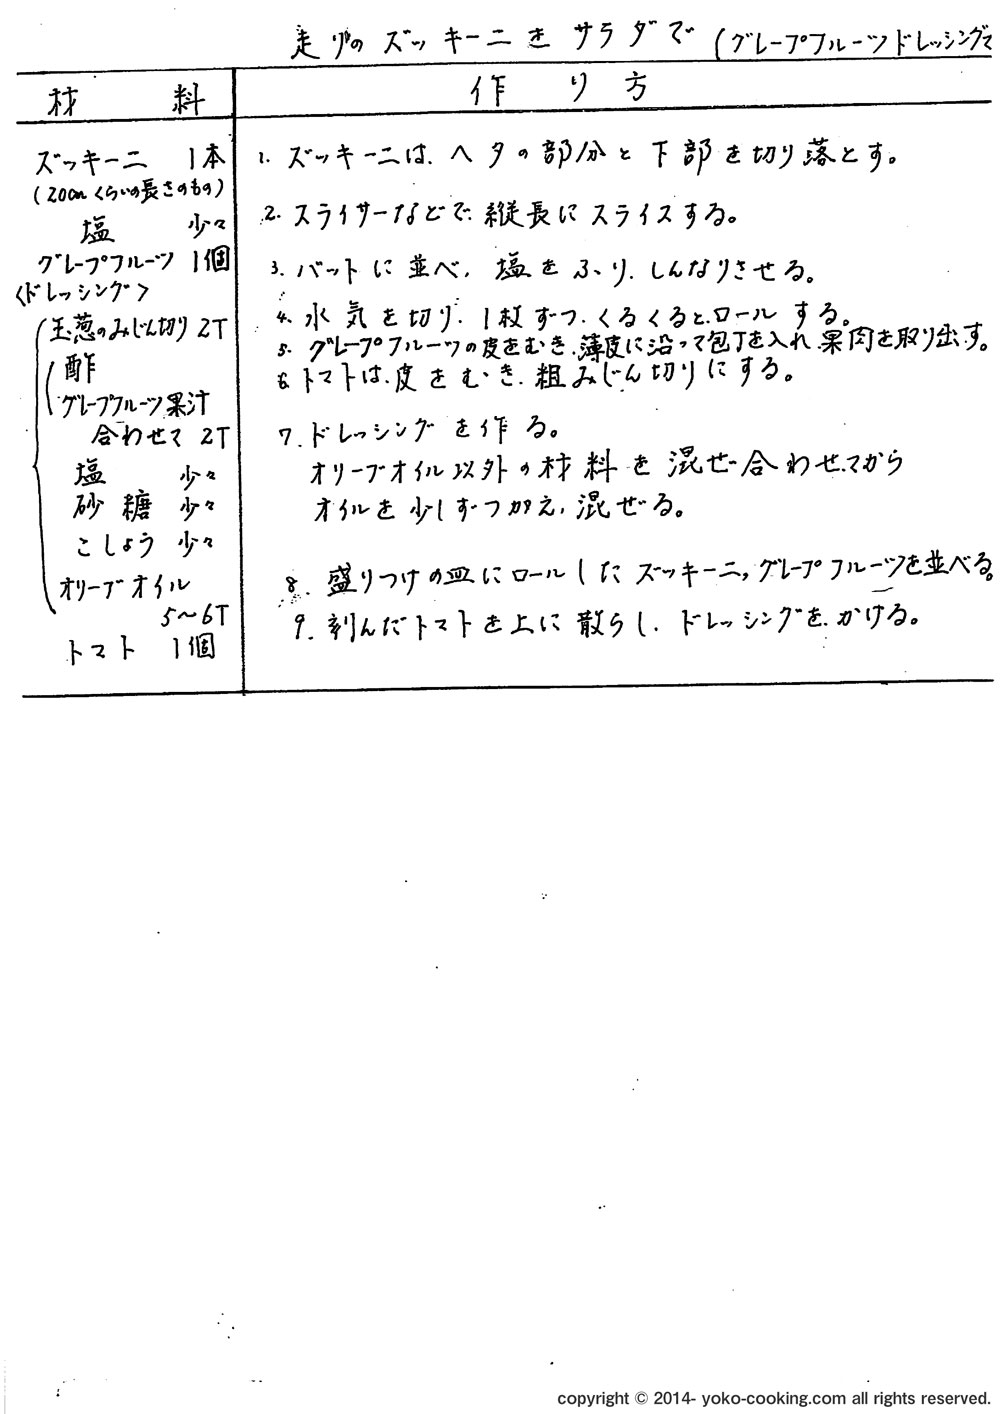 走りのズッキーニをサラダで (グレープフルーツドレッシングで
材 料
作 り 方
ズッキーニ 1本
(20cmくらいの長さのもの)
塩 少々
グレープフルーツ 1個
〈ドレッシング〉
玉葱のみじん切り 2T
酢
グレープフルーツ果汁
合わせて 2T
塩 少々
砂糖 少々
こしょう 少々
オリーブオイル
5〜6T
トマト 1個
1. ズッキーニは、ヘタの部分と下部を切り落とす。
2. スライサーなどで、縦長にスライスする。
3. バットに並べ、塩をふり、しんなりさせる。
4. 水気を切り、1枚ずつ、くるくると、ロールする。
5. グレープフルーツの皮をむき、薄皮に沿って包丁を入れ、果肉を取り出す。
6. トマトは、皮をむき、粗みじん切りにする。
7. ドレッシングを作る。
オリーブオイル以外の材料を混ぜ合わせてから
オイルを少しずつ加え、混ぜる。
8. 盛りつけの皿にロールしたズッキーニ,グレープフルーツを並べる。
9. 刻んだトマトを上に散らし、ドレッシングを、かける。
copyright © 2014- yoko-cooking.com all rights reserved.